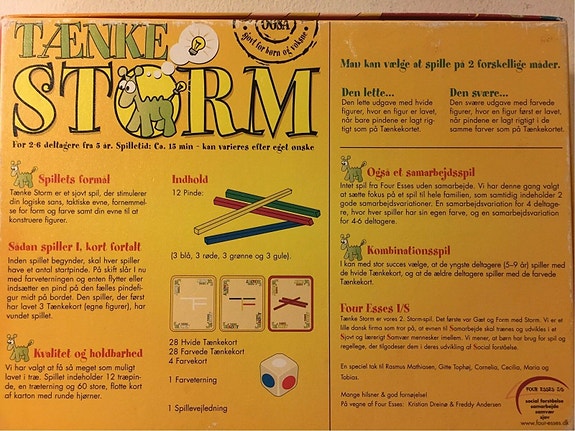 TÆNKE
STORM
OGSÅ
sjovt for børn og voksne
For 2-6 deltagere fra 5 år. Spilletid: Ca. 15 min - kan varieres efter eget ønske
Spillets formål
Tænke Storm er et sjovt spil, der stimulerer
din logiske sans, taktiske evne, fornemmel-
se for form og farve samt din evne til at
konstruere figurer.
Sådan spiller I, kort fortalt
Inden spillet begynder, skal hver spiller
have et antal startpinde. På skift slår I nu
med farveterningen og enten flytter eller
indsætter en pind på den fælles pindefi-
gur midt på bordet. Den spiller, der først
har lavet 3 Tænkekort (egne figurer), har
vundet spillet.
Kvalitet og holdbarhed
Vi har valgt at få så meget som muligt
lavet i træ. Spillet indeholder 12 træpin-
de, en træterning og 60 store, flotte kort
af karton med runde hjørner.
Indhold
12 Pinde:
(3 blå, 3 røde, 3 grønne og 3 gule).
28 Hvide Tænkekort
28 Farvede Tænkekort
4 Farvekort
1 Farveterning
1 Spillevejledning
Man kan vælge at spille på 2 forskellige måder.
Den lette...
Den lette udgave med hvide
figurer, hvor en figur er lavet,
når bare pindene er lagt rig-
tigt som på Tænkekortet.
Den svære...
Den svære udgave med farvede
figurer, hvor en figur først er lavet,
når pindene er lagt rigtigt i de
samme farver som på Tænkekortet.
Også et samarbejdsspil
Intet spil fra Four Esses uden samarbejde. Vi har denne gang valgt
at sætte fokus på et spil til hele familien, som samtidig indeholder 2
gode samarbejdsvariationer. En samarbejdsvariation for 4 deltage-
re, hvor hver spiller har sin egen farve, og en samarbejdsvariation
for 4-6 deltagere.
Kombinationsspil
I kan med stor succes vælge, at de yngste deltagere (5-9 år) spiller med
de hvide Tænkekort, og at de ældre deltagere spiller med de farvede
Tænkekort.
Four Esses I/S
Tænke Storm er vores 2. Storm-spil. Det første var Gæt og Form med Storm. Vi er et
lille dansk firma som tror på, at evnen til Samarbejde skal trænes og udvikles i et
Sjovt og lærerigt Samvær mennesker imellem. Vi mener, at børn har brug for spil og
regellege, der tilgodeser dem i deres udvikling af Social forståelse.
En speciel tak til Rasmus Mathiasen, Gitte Tophøj, Cornelia, Cecilia, Maria og
Tobias.
Mange hilsner & god fornøjelse!
På vegne af Four Esses: Kristian Dreinø & Freddy Andersen
FOUR ESSES I/S
social forståelse
samarbejde
samvær
sjov
www.four-esses.dk